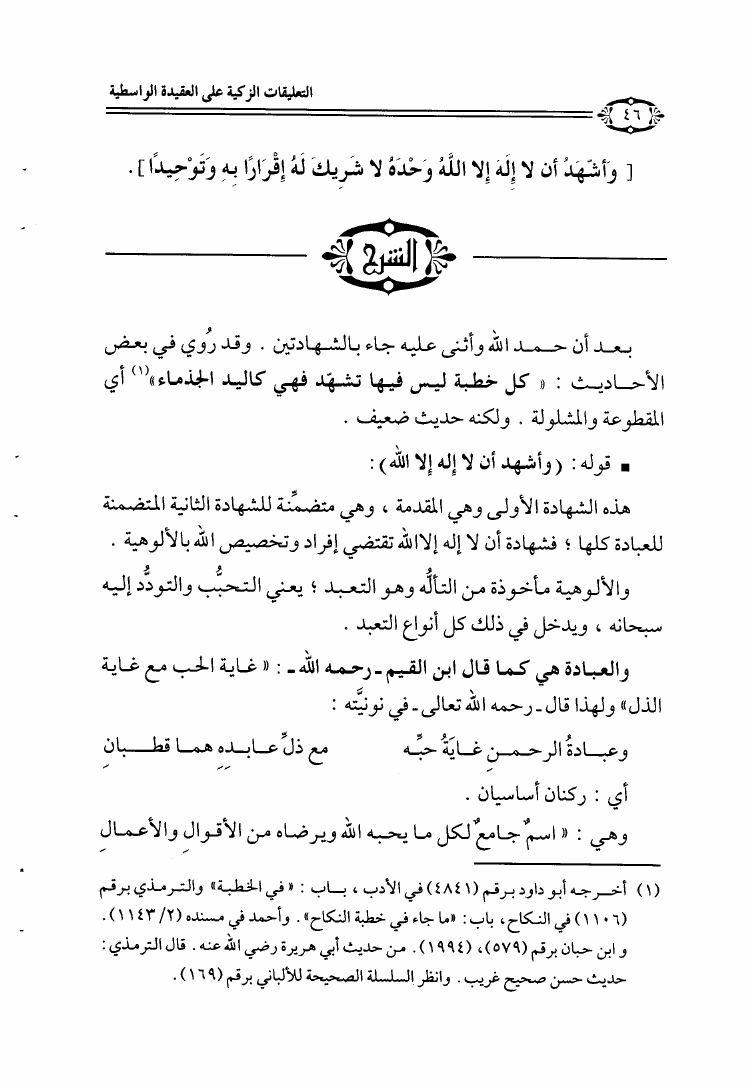 التعليقات الزكية على العقيدة الواسطية
٤٦
[ وَأَشْهَدُ أن لا إِلَهَ إلا اللَّهُ وَحْدَهُ لا شَرِيكَ لَهُ إِقْرَارًا بِهِ وَتَوْحِيدًا ] .
الشرح
بعد أن حمد الله وأثنى عليه جاء بالشهادتين . وقد رُوي في بعض
الأحاديث : « كل خطبة ليس فيها تشهّد فهي كاليد الجذماء»(١) أي
المقطوعة والمشلولة . ولكنه حديث ضعيف .
▪ قوله : (وأشهد أن لا إله إلا الله) :
هذه الشهادة الأولى وهي المقدمة ، وهي متضمِّنة للشهادة الثانية المتضمنة
للعبادة كلها ؛ فشهادة أن لا إله إلا الله تقتضي إفراد وتخصيص الله بالألوهية .
والألوهية مأخوذة من التألُّه وهو التعبد ؛ يعني التحبُّب والتودُّد إليه
سبحانه ، ويدخل في ذلك كل أنواع التعبد .
والعبادة هي كما قال ابن القيم ـ رحمه الله ـ : « غاية الحب مع غاية
الذل» ولهذا قال ـ رحمه الله تعالى ـ في نونيَّته :
وعبادةُ الرحمنِ غايَةُ حبِّه مع ذلِّ عابدِهِ هما قطبانِ
أي : ركنان أساسيان .
وهي : « اسمٌ جامعٌ لكل ما يحبه الله ويرضاه من الأقوالِ والأعمالِ
(١) أخرجه أبو داود برقم (٤٨٤١) في الأدب ، باب : « في الخطبة» والترمذي برقم
(١١٠٦) في النكاح، باب : «ما جاء في خطبة النكاح». وأحمد في مسنده (٢/ ١١٤٣).
وابن حبان برقم (٥٧٩)، (١٩٩٤). من حديث أبي هريرة رضي الله عنه . قال الترمذي :
حديث حسن صحيح غريب . وانظر السلسلة الصحيحة للألباني برقم (١٦٩).